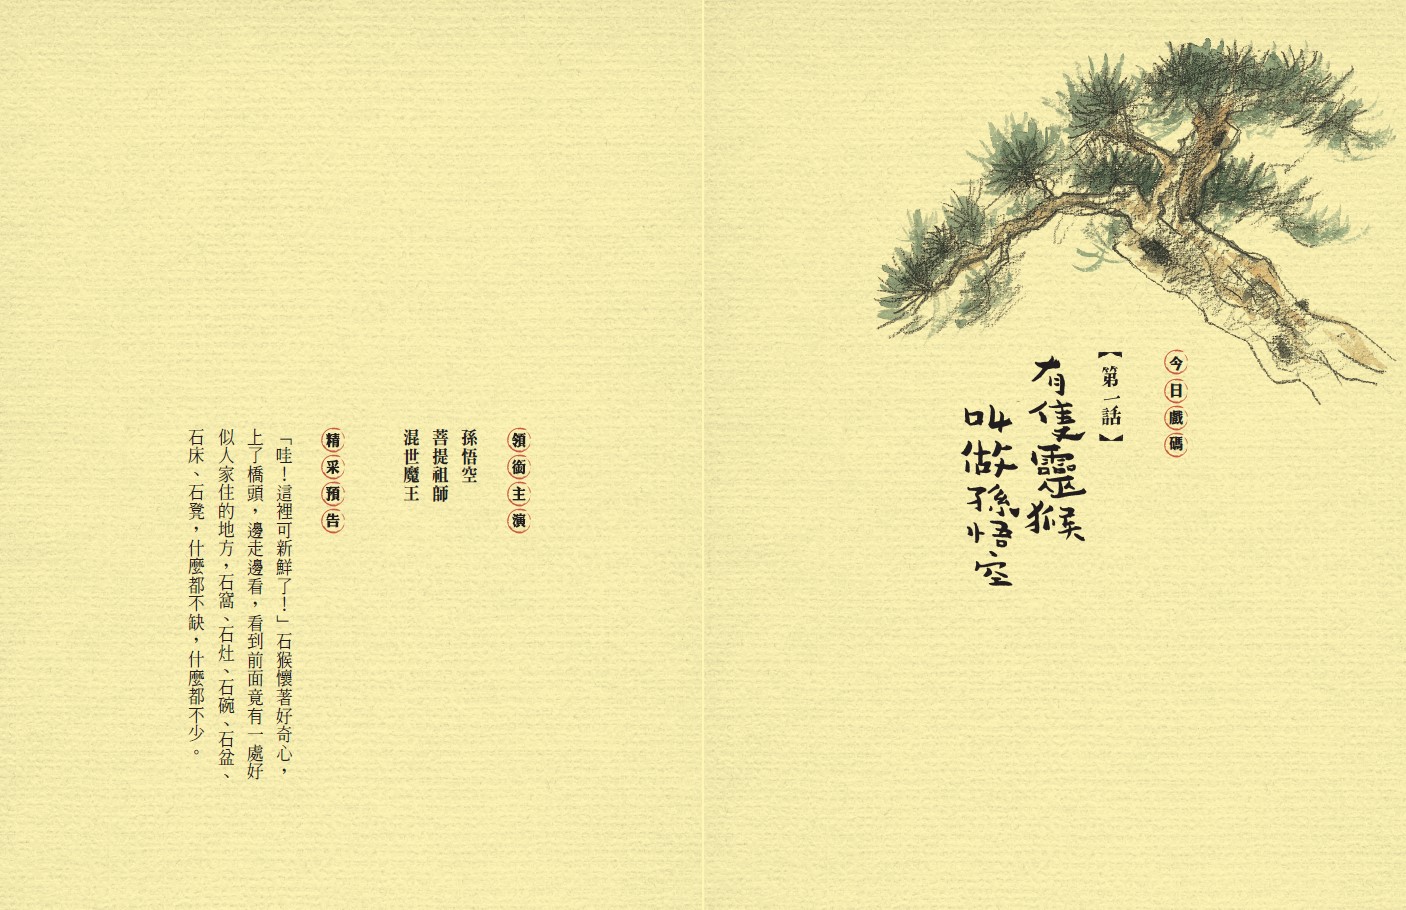 今日戲碼
【第一話】
有隻靈猴
叫做孫悟空
領銜主演
孫悟空
菩提祖師
混世魔王
精采預告
「哇！這裡可新鮮了！」石猴懷著好奇心，
上了橋頭，邊走邊看，看到前面竟有一處好
似人家住的地方，石窩、石灶、石碗、石盆、
石床、石凳，什麼都不缺，什麼都不少。